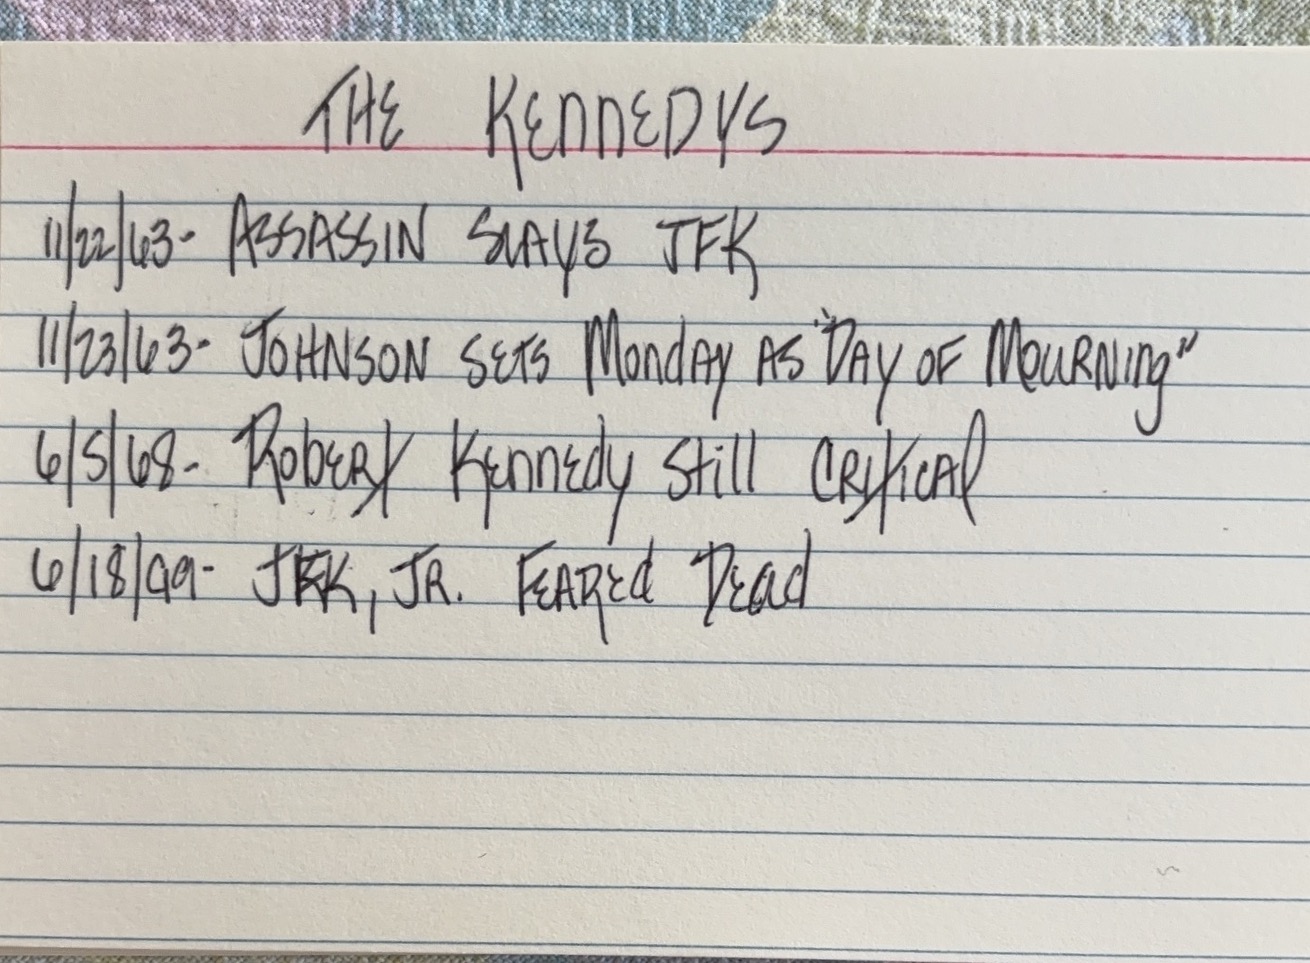 THE KENNEDYS
11/22/63- ASSASSIN SLAYS JFK
11/23/63- JOHNSON SETS MONDAY AS "DAY OF MOURNING"
6/5/68- ROBERT KENNEDY STILL CRITICAL
6/18/99- JFK, JR. FEARED DEAD